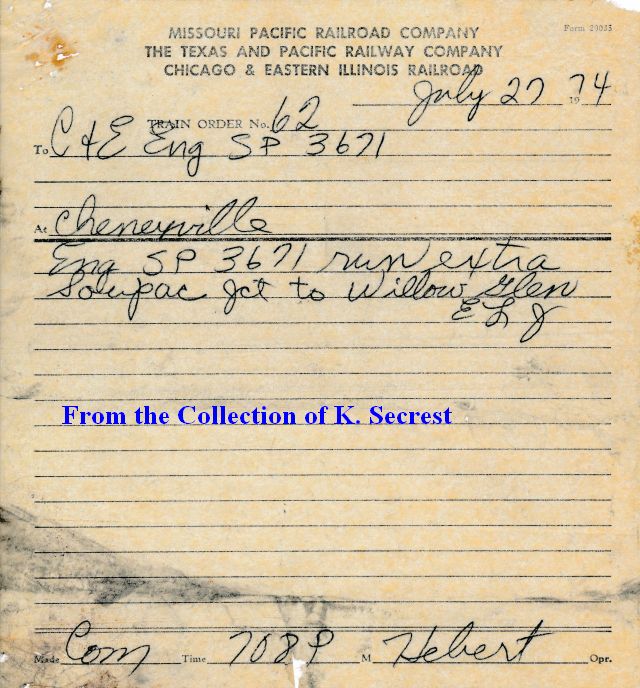 MISSOURI PACIFIC RAILROAD COMPANY
Form 29033
THE TEXAS AND PACIFIC RAILWAY COMPANY
CHICAGO & EASTERN ILLINOIS RAILROAD
July 27 1974
TRAIN ORDER No. 62
To C & E Eng SP 3671
At Cheneyville
Eng SP 3671 run extra
Soupac Jct to Willow Glen
E L J
From the Collection of K. Secrest
Made Com Time 708 P M Hebert Opr.